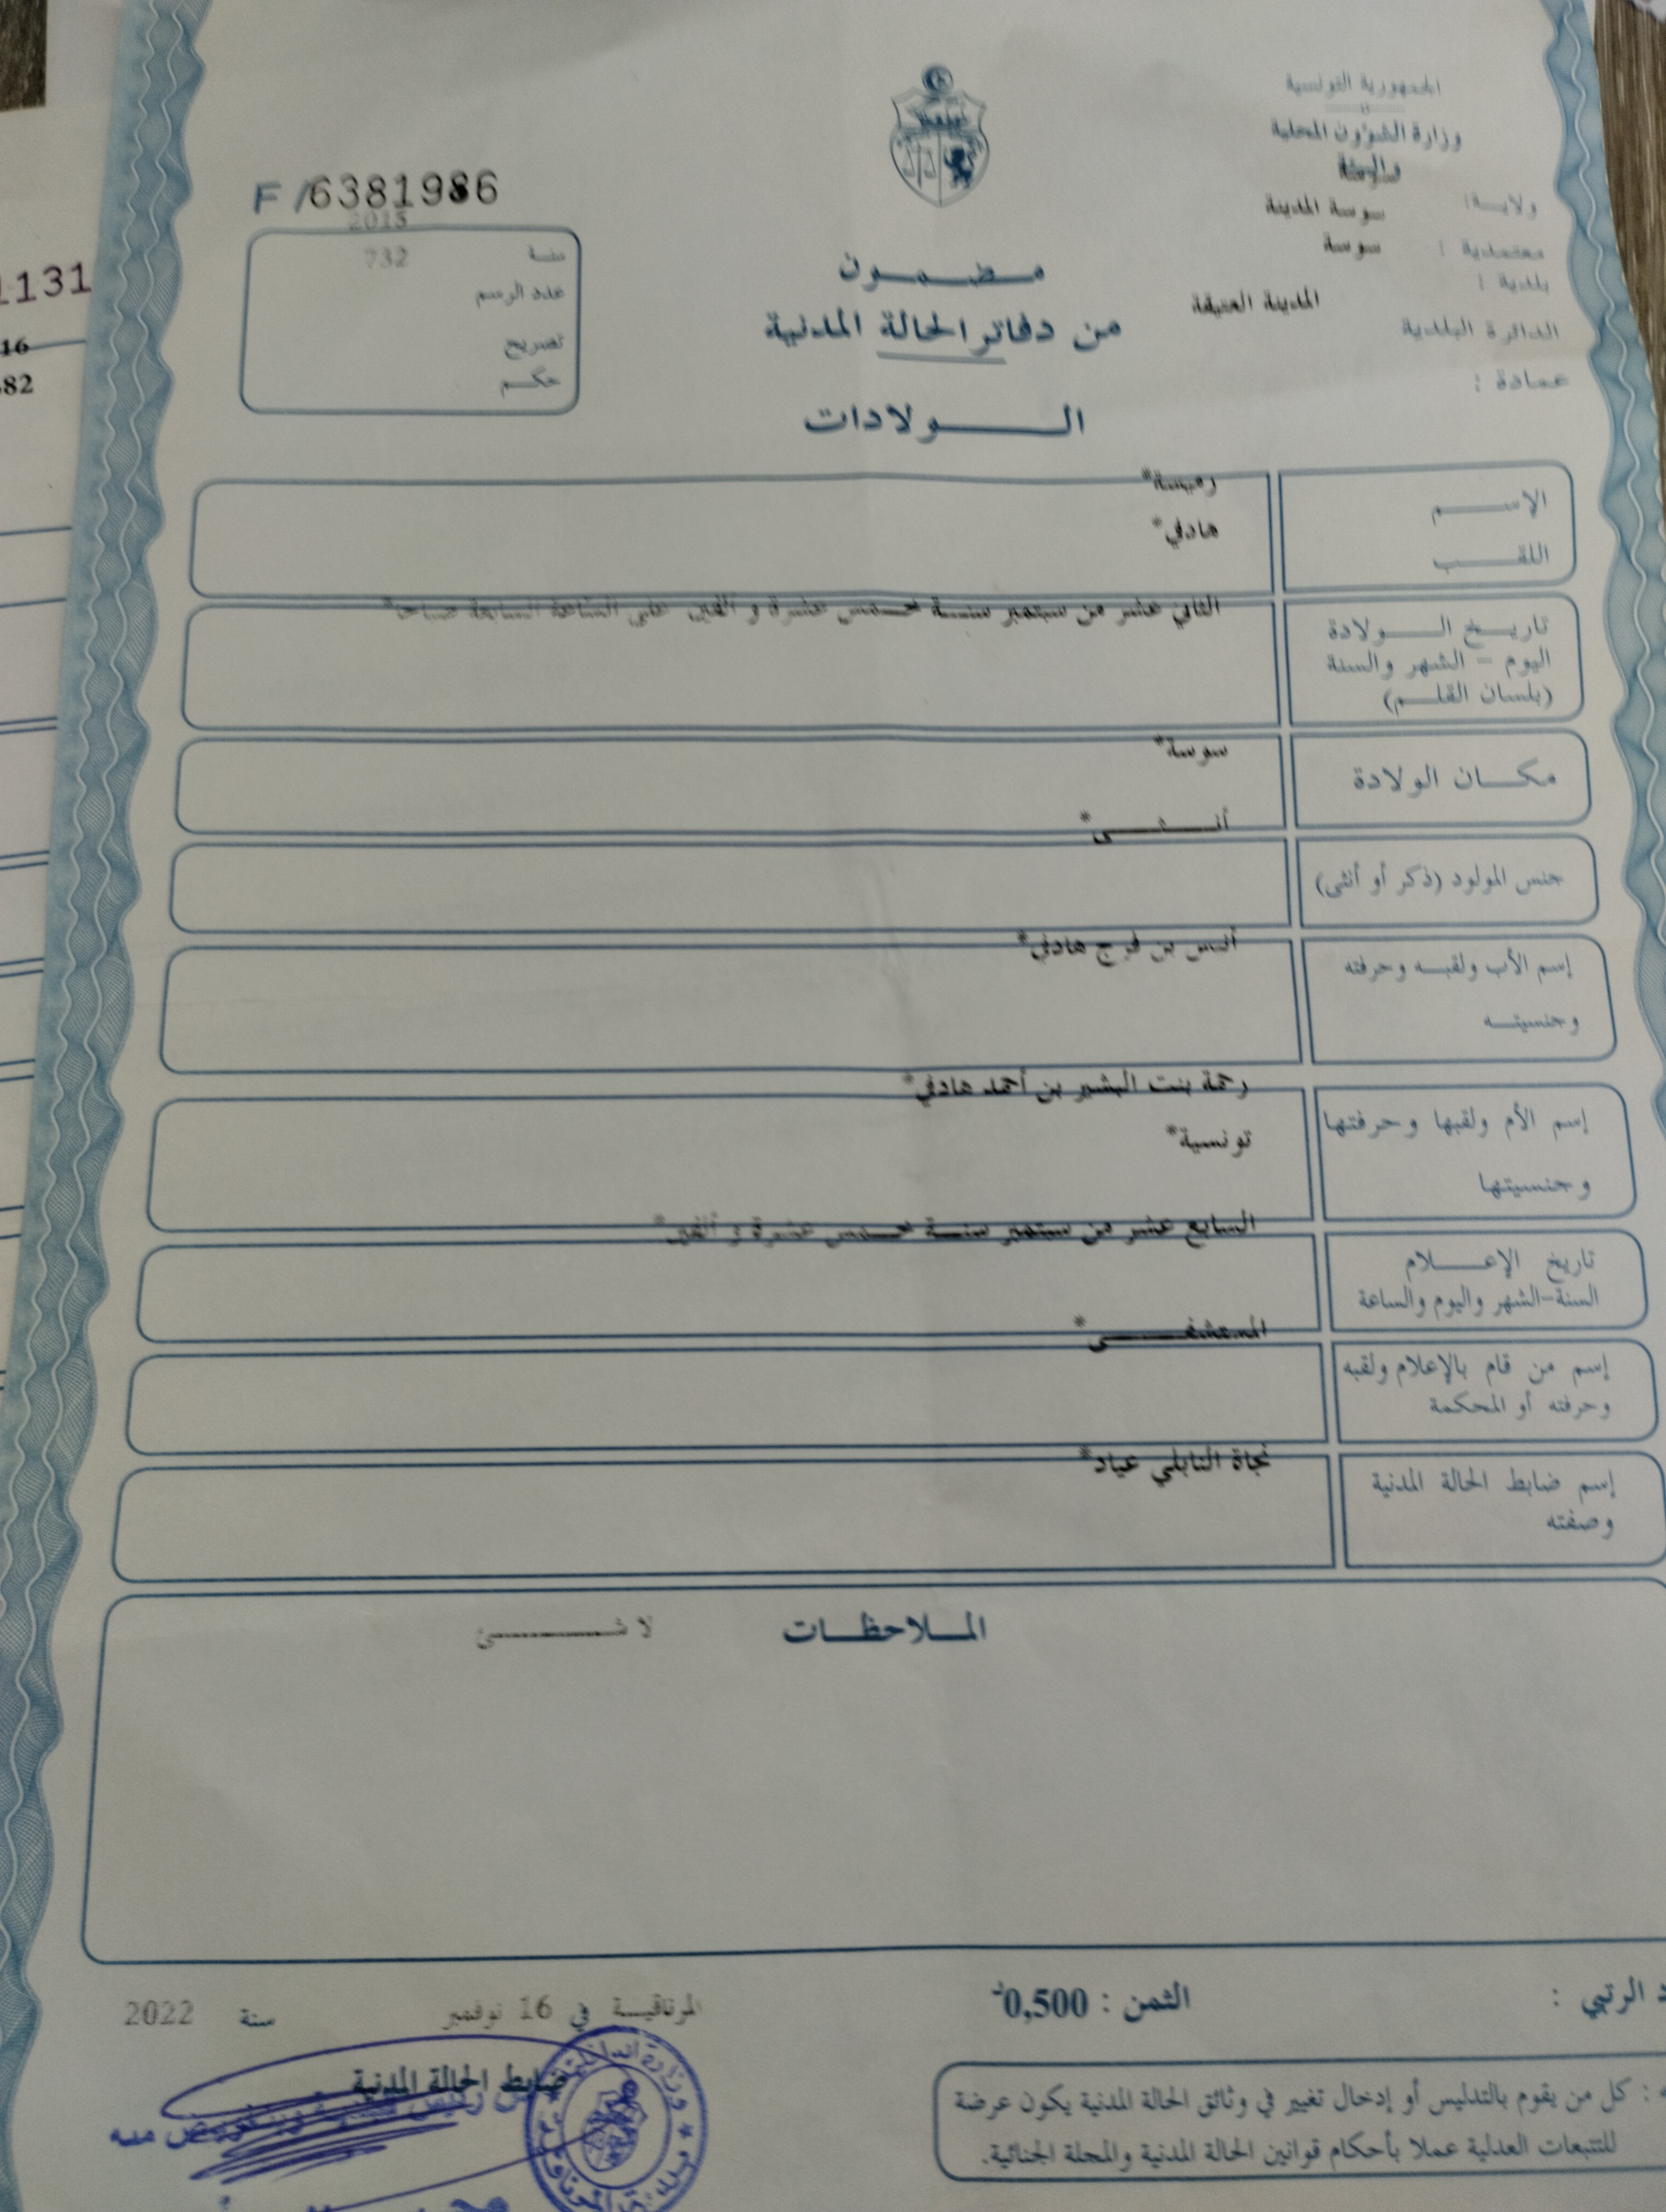 الجمهورية التونسية
وزارة الشؤون المحلية
والبيئة
سوسة
ولاية:
سوسة المدينة
معتمدية :
سوسة
بلدية :
المدينة العتيقة
الدائرة البلدية
عمادة :
F/6381986
2015
سنة
732
عدد الرسم
تصريح
حكم
مضمون
من دفاتر الحالة المدنية
الولادات
الإسم
رميسة*
اللقب
هادفي*
تاريخ الولادة
اليوم - الشهر والسنة
(بلسان القلم)
الثاني عشر من سبتمبر سنة خمس عشرة و ألفين على الساعة السابعة صباحا*
مكان الولادة
سوسة*
جنس المولود (ذكر أو أنثى)
أنثى*
إسم الأب ولقبه وحرفته
وجنسيته
أنيس بن فرج هادفي*
إسم الأم ولقبها وحرفتها
وجنسيتها
رحمة بنت البشير بن أحمد هادفي*
تونسية*
تاريخ الإعلام
السنة-الشهر واليوم والساعة
السابع عشر من سبتمبر سنة خمس عشرة و ألفين*
إسم من قام بالإعلام ولقبه
وحرفته أو المحكمة
المستشفى*
إسم ضابط الحالة المدنية
وصفته
نجاة النابلي عياد*
الملاحظات
لا شئ
د الرتبي :
الثمن : 0,500د
المرناقية في 16 نوفمبر سنة 2022
ضابط الحالة المدنية
ه : كل من يقوم بالتدليس أو إدخال تغيير في وثائق الحالة المدنية يكون عرضة
للتتبعات العدلية عملا بأحكام قوانين الحالة المدنية والمجلة الجنائية.
1131
16
82